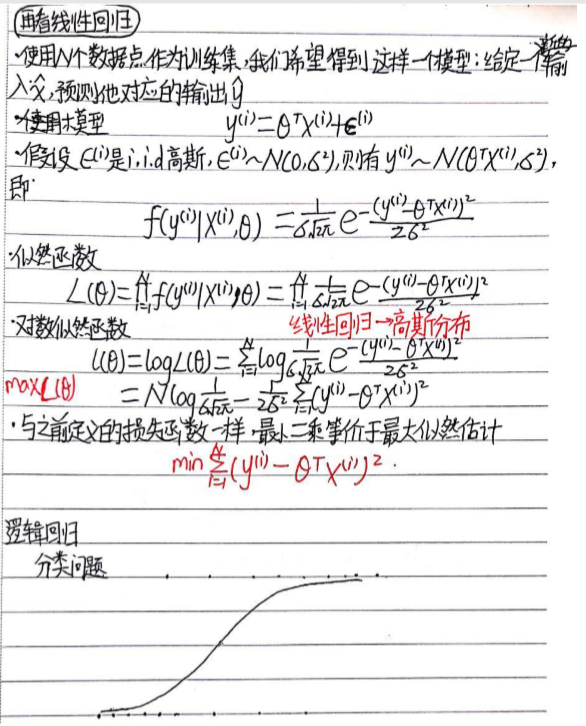 再看线性回归
·使用N个数据点作为训练集,我们希望得到这样一个模型:给定一个新的输
入x̂,预测他对应的输出ŷ
·使用模型 y⁽ⁱ⁾=θᵀx⁽ⁱ⁾+ϵ⁽ⁱ⁾
·假设 ϵ⁽ⁱ⁾是i.i.d高斯,ϵ⁽ⁱ⁾~N(0,σ²),则有 y⁽ⁱ⁾~N(θᵀx⁽ⁱ⁾,σ²),
即
f(y⁽ⁱ⁾|x⁽ⁱ⁾,θ) = 1/(σ√2π) e^-(y⁽ⁱ⁾-θᵀx⁽ⁱ⁾)²/2σ²
·似然函数
L(θ)=∏ᵢ₌₁ᴺ f(y⁽ⁱ⁾|x⁽ⁱ⁾,θ) = ∏ᵢ₌₁ᴺ 1/(σ√2π) e^-(y⁽ⁱ⁾-θᵀx⁽ⁱ⁾)²/2σ²
·对数似然函数 线性回归→高斯分布
l(θ)=logL(θ)= ∑ᵢ₌₁ᴺ log 1/(σ√2π) e^-(y⁽ⁱ⁾-θᵀx⁽ⁱ⁾)²/2σ²
maxL(θ) =Nlog 1/(σ√2π) - 1/2σ² ∑ᵢ₌₁ᴺ(y⁽ⁱ⁾-θᵀx⁽ⁱ⁾)²
·与之前定义的损失函数一样,最小二乘等价于最大似然估计
min ∑ᵢ₌₁ᴺ(y⁽ⁱ⁾-θᵀx⁽ⁱ⁾)².
逻辑回归
分类问题